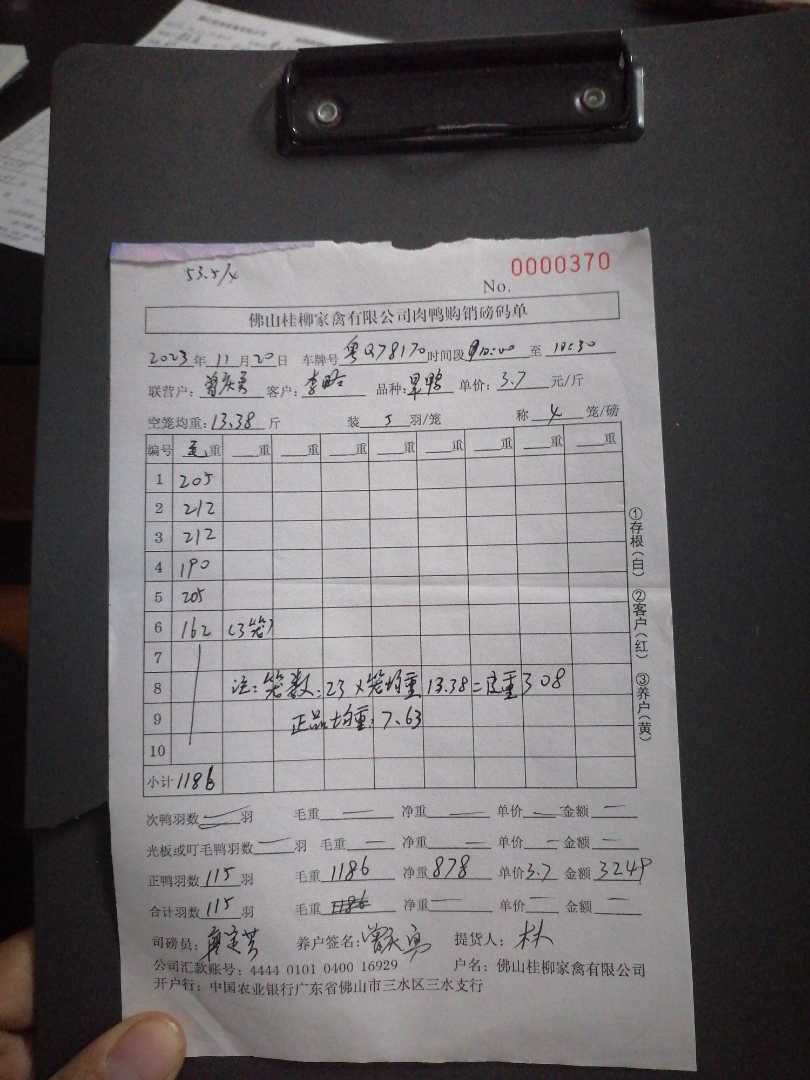 53.5/4
No. 0000370
佛山桂柳家禽有限公司肉鸭购销磅码单
2023年11月20日 车牌号粤Q78170时间段10:00至10:30
联营户: 客户: 品种: 单价:3.7元/斤
空笼均重:13.38斤 装5羽/笼 称4笼/磅
编号 毛重 重 重 重 重 重 重 重 重
1 205
2 212
3 212
4 190
5 205
6 162 (3笼)
7
8 注:笼数:23×笼均重13.38=皮重308
9 正品均重:7.63
10
小计1186
①存根(白) ②客户(红) ③养户(黄)
次鸭羽数 羽 毛重 净重 单价 金额
光板或叮毛鸭羽数 羽 毛重 净重 单价 金额
正鸭羽数115羽 毛重1186 净重878 单价3.7 金额3249
合计羽数115羽 毛重1186 净重 单价 金额
司磅员: 养户签名: 提货人:
公司汇款账号:4444 0101 0400 16929 户名:佛山桂柳家禽有限公司
开户行:中国农业银行广东省佛山市三水区三水支行